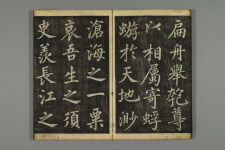 扁舟舉匏尊
以相屬寄蜉
蝣於天地渺
滄海之一粟
哀吾生之須
臾羨長江之